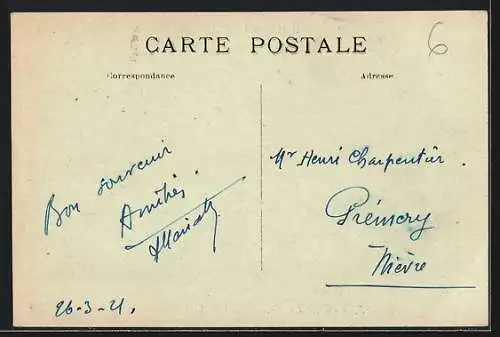 CARTE POSTALE
6
Correspondance
Adresse
Bon souvenir
Amitiés.
Mr Henri Charpentier.
Prémery
Nièvre
26-3-21.